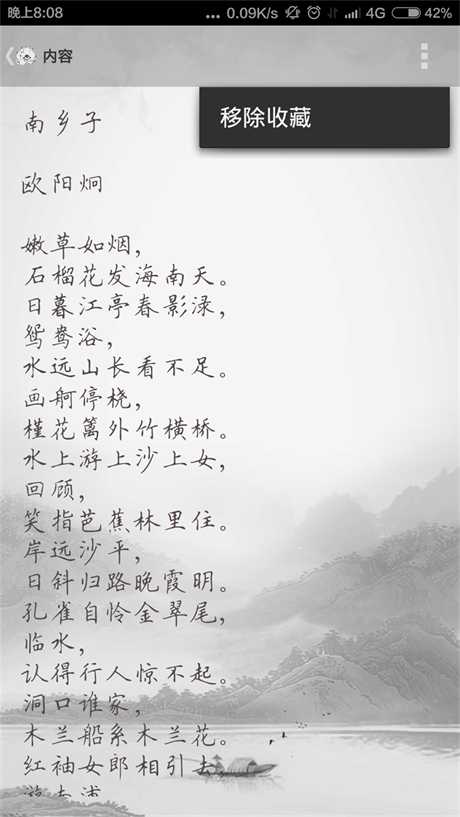 晚上8:08 ... 0.09K/s 4G 42%
内容
移除收藏
南乡子
欧阳炯
嫩草如烟，
石榴花发海南天。
日暮江亭春影渌，
鸳鸯浴，
水远山长看不足。
画舸停桡，
槿花篱外竹横桥。
水上游人沙上女，
回顾，
笑指芭蕉林里住。
岸远沙平，
日斜归路晚霞明。
孔雀自怜金翠尾，
临水，
认得行人惊不起。
洞口谁家，
木兰船系木兰花。
红袖女郎相引去
游南浦